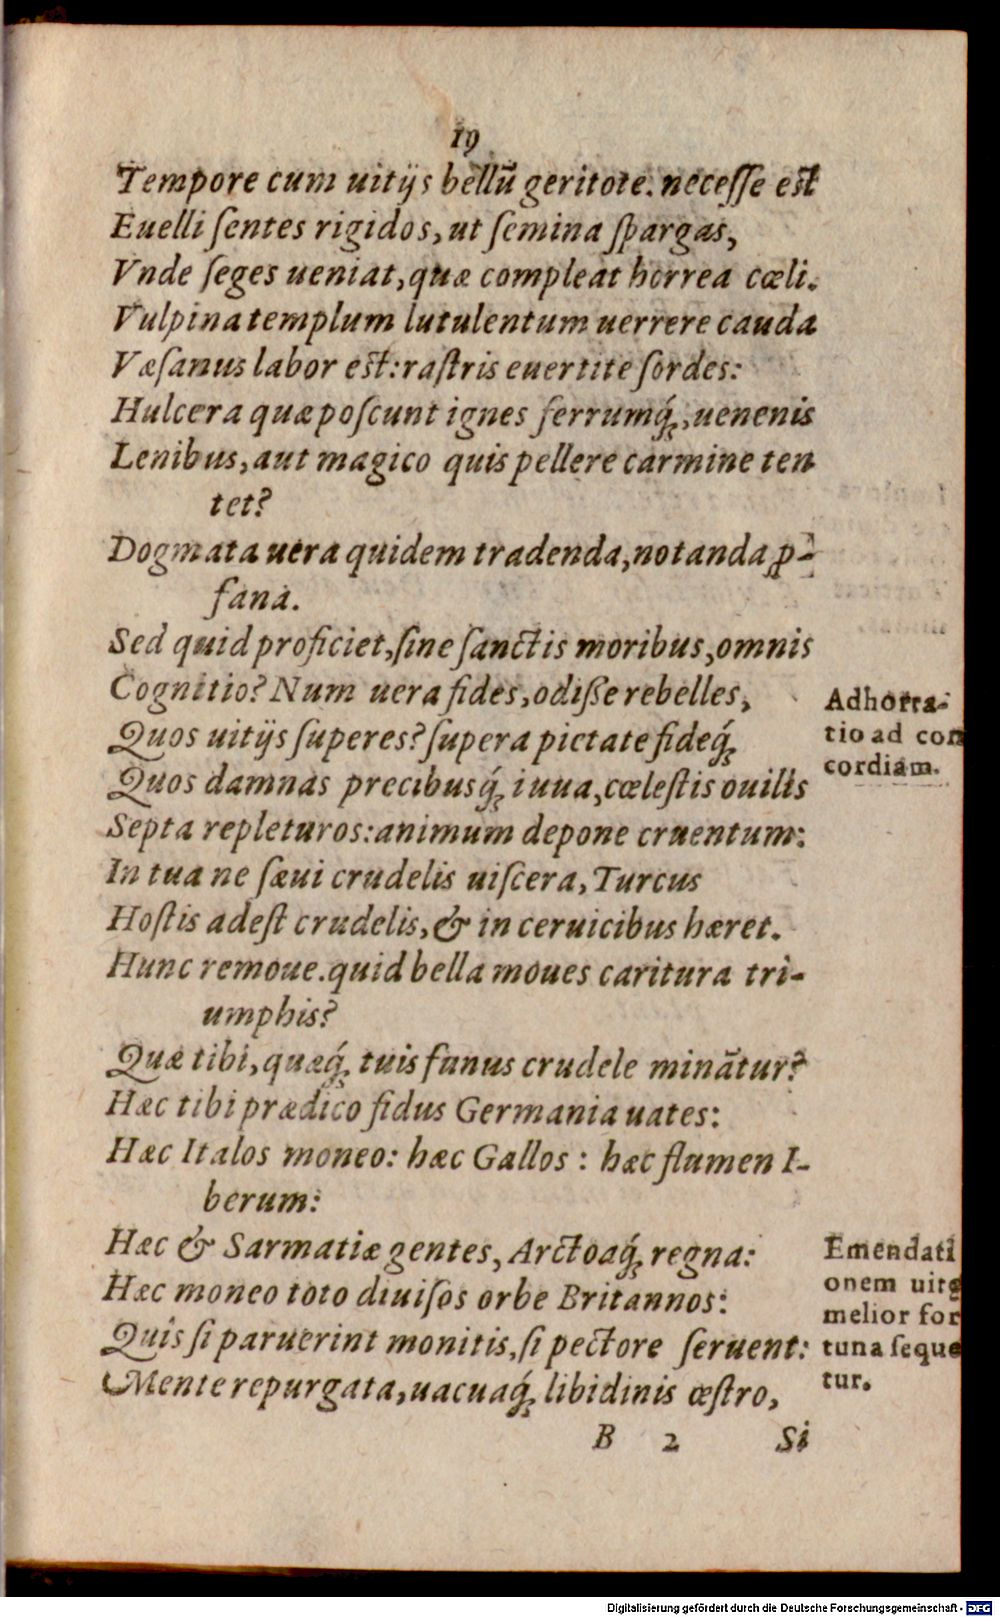 19
Tempore cum uitijs bellũ geritote. necesse est
Euelli sentes rigidos, ut semina spargas,
Vnde seges ueniat, quæ compleat horrea cœli.
Vulpina templum lutulentum uerrere cauda
Væsanus labor est: rastris euertite sordes:
Hulcera quæ poscunt ignes ferrumq́;, uenenis
Lenibus, aut magico quis pellere carmine ten
tet?
Dogmata uera quidem tradenda, notanda ꝓ-
fana.
Sed quid proficiet, sine sanctis moribus, omnis
Cognitio? Num uera fides, odisse rebelles,
Quos uitijs superes? supera pietate fideq́;
Quos damnas precibusq́; iuua, cœlestis ouilis
Septa repleturos: animum depone cruentum:
In tua ne sæui crudelis uiscera, Turcus
Hostis adest crudelis, & in ceruicibus hæret.
Hunc remoue. quid bella moues caritura tri-
umphis?
Quæ tibi, quæq́; tuis funus crudele minãtur?
Hæc tibi prædico fidus Germania uates:
Hæc Italos moneo: hæc Gallos: hæc flumen I-
berum:
Hæc & Sarmatiæ gentes, Arctoaq́; regna:
Hæc moneo toto diuisos orbe Britannos:
Quîs si paruerint monitis, si pectore seruent:
Mente repurgata, uacuaq́; libidinis œstro,
B 2 Si
Adhorta-
tio ad con
cordiam.
Emendati
onem uitę
melior for
tuna seque
tur.
Digitalisierung gefördert durch die Deutsche Forschungsgemeinschaft - DFG